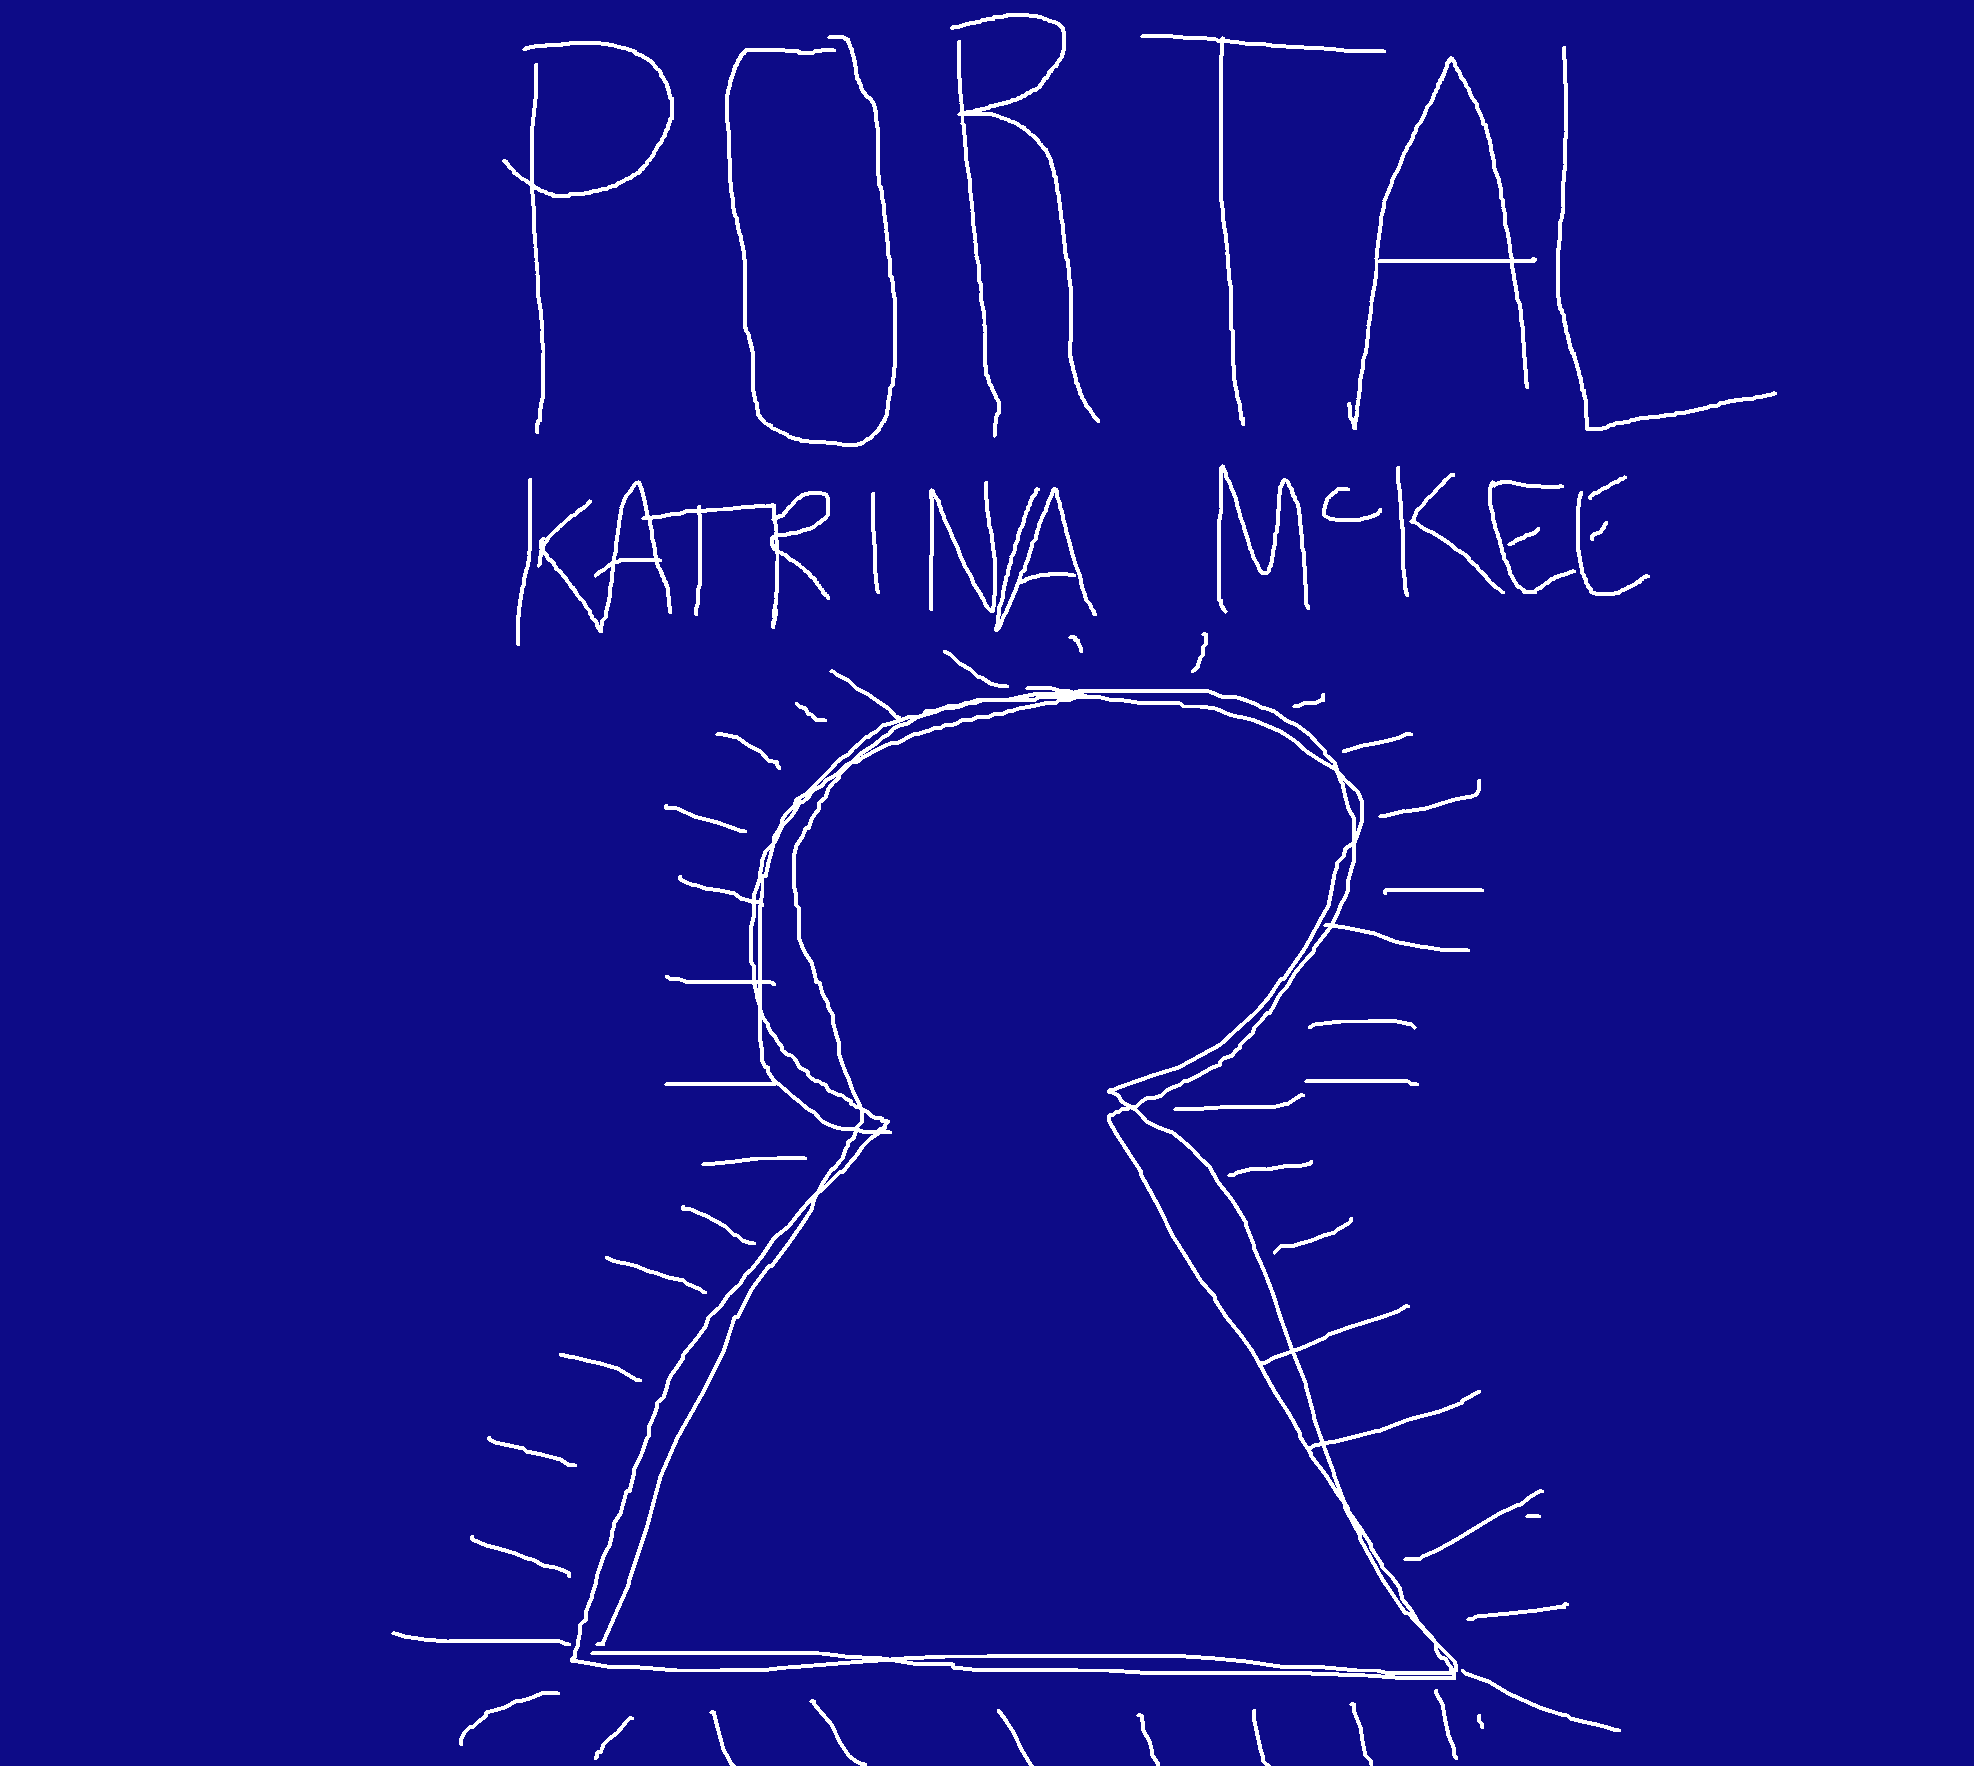 PORTAL
KATRINA McKEE